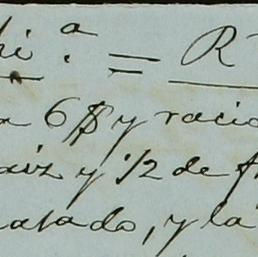 hi.ª = R
6 $ y racio
aiz y 1/2 de f
asado, y la